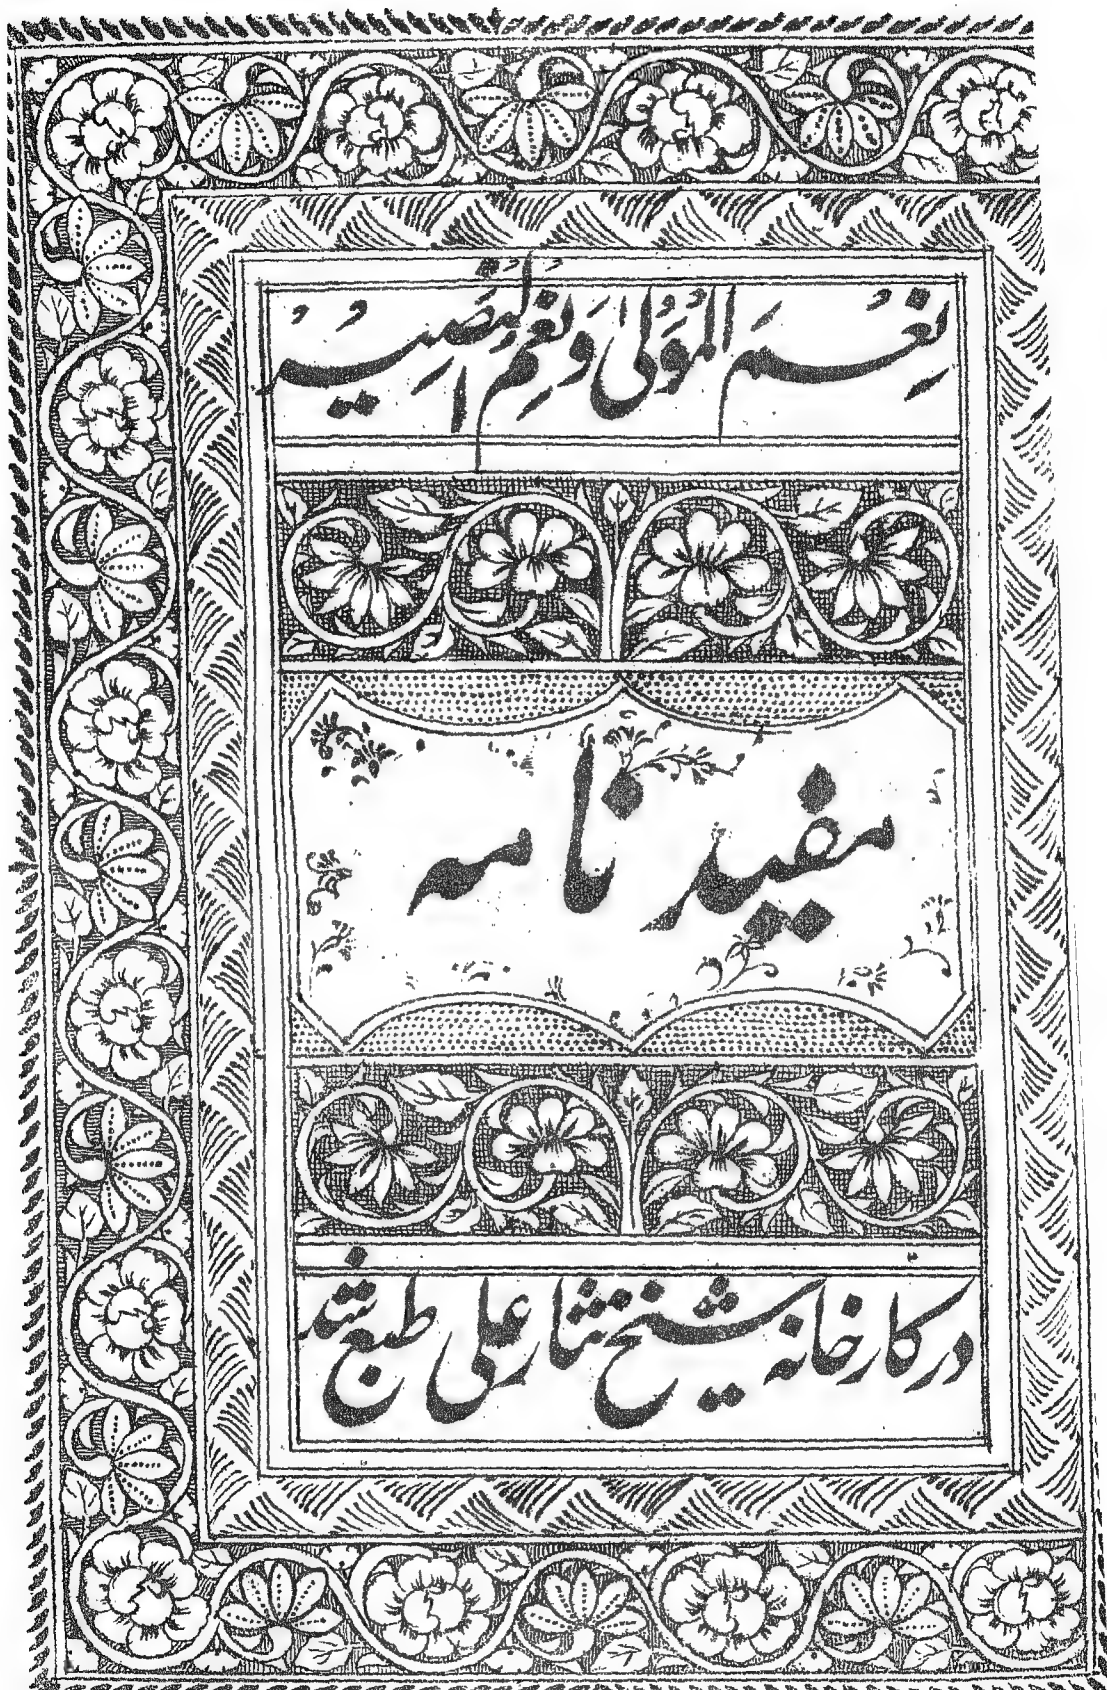 نِعْمَ الْمَوْلَىٰ وَنِعْمَ النَّصِیْرُ
مفید نامہ
در کارخانہ شیخ نثار علی طبع شد